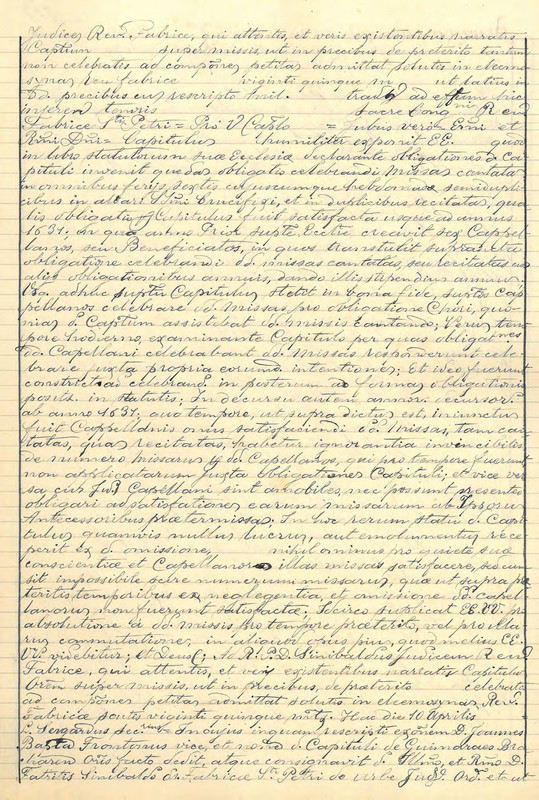 Judices Rev. Fabrice, qui attentis, et veris existentibus narratis
Captum super missis, ut in precibus de preterito tantum
non celebratis ad compones petitas admittat solutis in eleemo
synas Rev Fabrice viginti quinque m ut latius in
dd. precibus cu rescripto trad ad
inseren tenoris Sacre Cong Rev
Fabrice Sti Petri = Pro V Caplo = Emi et
Rmi Dni = Capitulus humiliter exponit EE. quod
in libro statutorum suæ Ecclesiæ declarante obligationes d. Ca
pituli invenit quedas obligatio celebrandi Missas cantatas
in omnibus feriis sextis cujuscumque hebdomadæ semidupli
cibus in altari Ssmi Crucifixi, et in duplicibus recitatas, qua
lis obligatio Capitulus fuit satisfacta usque ad annus
1637. in quo anno Prior Ecclæ creavit sex Cappel
lanos, seu Beneficiatos, in quos transtulit
obligatione celebrandi dd. missas cantatas, seu recitatas cu
aliis obligationibus annuis, dando illis stipendius annuu.
adhuc Capitulus stetit in bona fide, Cap
pellanos celebrare dd. missas pro obligatione Chori, quo
nias d. Captum assistebat dd. missis cantando; Verus tem
pore hodierno, examinante Capitulo per quas obligatnes
dd. Capellani celebrabant dd. Missas responderunt cele
brare juxta propria eorum intentiones; Et ideo fuerunt
constricti ad celebrand. in posterum ad formas obligationis
posits. in statutis; In decursu autem annor.
ab anno 1637. quo tempore, ut supra dictus est, injunctus
fuit Cappellanis onus satisfaciendi dd. Missas, tam can
tatas, quas recitatas, habetur ignorantia invincibilis
de numero missarus dd. Capellanos, qui pro tempore fuerunt
non applicatarum juxta obligationes Capituli; et vice ver
sa cus Capellani sint amobiles, nec possunt presentes
obligari ad satisfationes earum missarum ab
Antecessoribus prætermissas; In hoc rerum statu d. Capi
tulus quamvis nullus lucrus, aut emolumentus rece
perit ex d. omissione, nihilominus pro quiete suæ
conscientiæ et Capellanors illas missas satisfacere, sed cum
sit impossibile scire numerum missarus, quæ ut supra præ
teritis temporibus ex neglegentia, et omissione dd. Capel
lanorus non fuerunt satisfactæ; Idcirco suplicat EE. VV. pro
absolutione a dd. missis pro tempore præterito, vel pro illa
rus commutatione, in aliquod opus pius, quod melius EE.
VV. videbitur; et Deus; Ad R. P. D. Sinibaldus Judicem Revd
Fabrice, qui attentis, et veris existentibus narratis Capitulus
Oren super missis, ut in precibus, de preterito celebratis
ad compones petitas admittat solutis in eleemosynas Revd.
Fabricæ scutis viginti quinque Hac die 10 Aprilis
inquam rescripti D. Joannes
Bapta Frontonus vice, et nomine d. Capituli de Guimaraes Bra
charen facto dedit, atque consignavit d. Illmo, et Rmo D.
Fatretis Sinibaldo d. Fabricæ Sti Petri de Urbe Ord. et ut